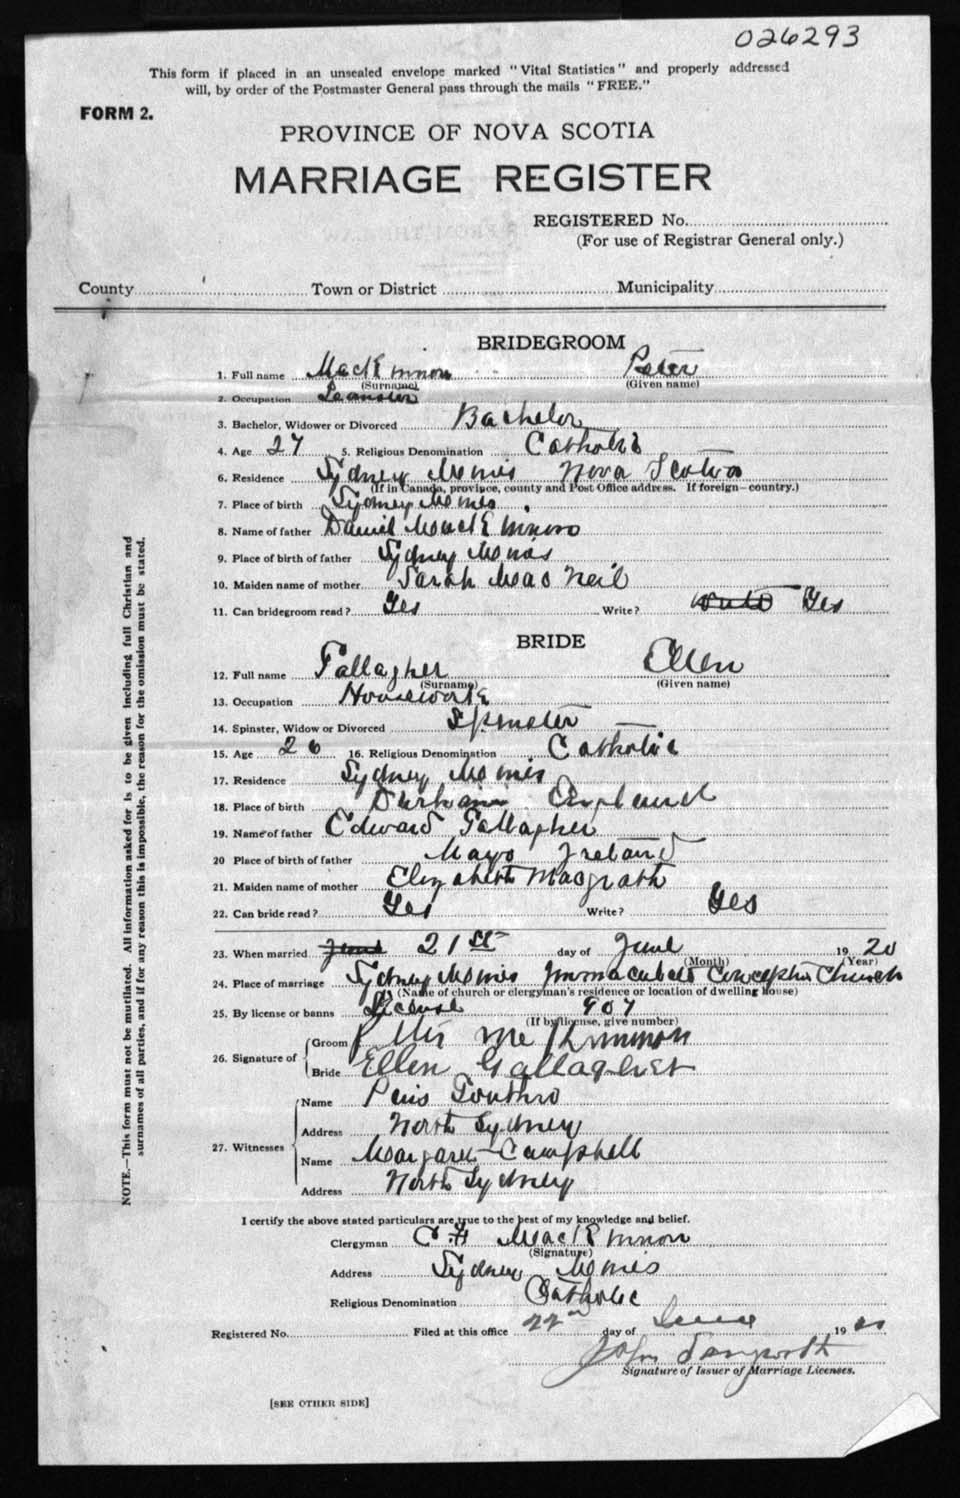 026293
This form if placed in an unsealed envelope marked "Vital Statistics" and properly addressed
will, by order of the Postmaster General pass through the mails "FREE."
FORM 2.
PROVINCE OF NOVA SCOTIA
MARRIAGE REGISTER
REGISTERED No.
(For use of Registrar General only.)
County Town or District Municipality
BRIDEGROOM
1. Full name MacKinnon Peter
(Surname) (Given name)
2. Occupation Teamster
3. Bachelor, Widower or Divorced Bachelor
4. Age 27 5. Religious Denomination Catholic
6. Residence Sydney Mines Nova Scotia
(If in Canada, province, county and Post Office address. If foreign—country.)
7. Place of birth Sydney Mines
8. Name of father Daniel MacKinnon
9. Place of birth of father Sydney Mines
10. Maiden name of mother Sarah MacNeil
11. Can bridegroom read? Yes Write? Yes
BRIDE
12. Full name Gallagher Ellen
(Surname) (Given name)
13. Occupation Housework
14. Spinster, Widow or Divorced Spinster
15. Age 26 16. Religious Denomination Catholic
17. Residence Sydney Mines
18. Place of birth Durham England
19. Name of father Edward Gallagher
20 Place of birth of father Mayo Ireland
21. Maiden name of mother Elizabeth Macgrath
22. Can bride read? Yes Write? Yes
23. When married June 21st day of June 1920
(Month) (Year)
24. Place of marriage Sydney Mines Immaculate Conception Church
(Name of church or clergyman's residence or location of dwelling house)
25. By license or banns License 907
(If by license, give number)
26. Signature of
Groom Peter McKinnon
Bride Ellen Gallagher
27. Witnesses
Name Gouthro
Address North Sydney
Name Margaret Campbell
Address North Sydney
I certify the above stated particulars are true to the best of my knowledge and belief.
Clergyman MacKinnon
(Signature)
Address Sydney Mines
Religious Denomination Catholic
Registered No. Filed at this office 22nd day of June 19
John
Signature of Issuer of Marriage Licenses.
[SEE OTHER SIDE]
NOTE.—This form must not be mutilated. All information asked for is to be given including full Christian and
surnames of all parties, and if for any reason this is impossible, the reason for the omission must be stated.